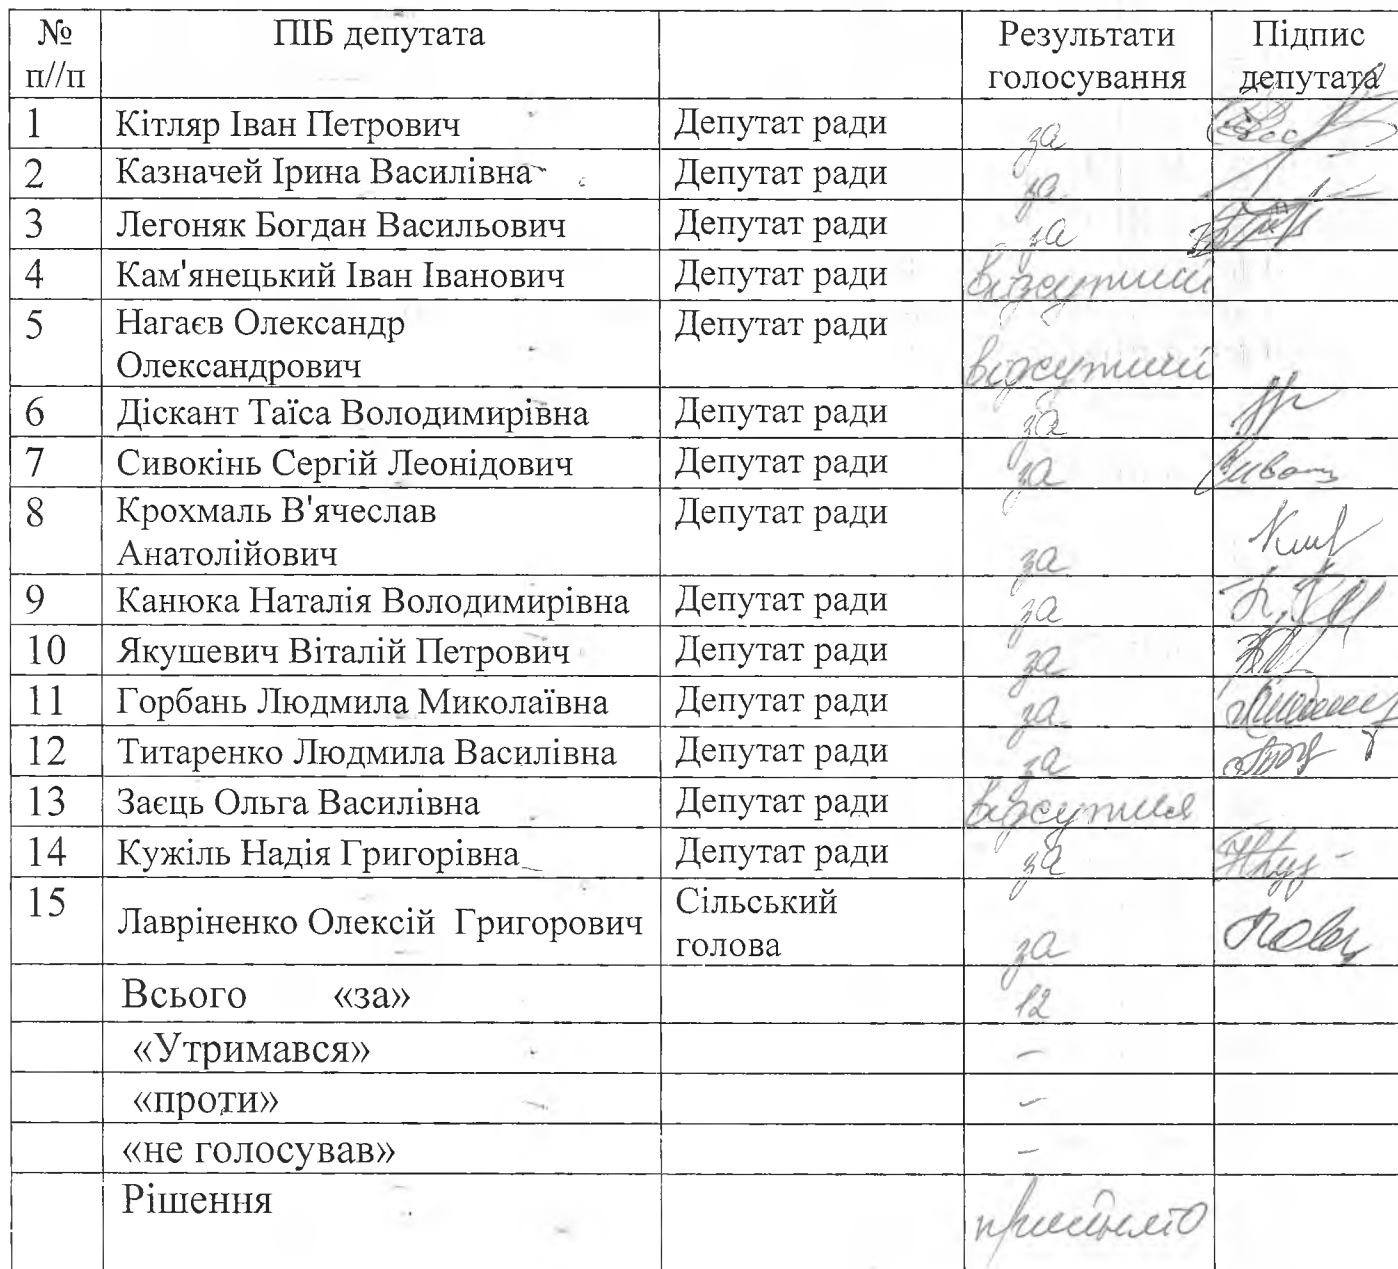 № ПІБ депутата Результати Підпис
п//п голосування депутата
1 Кітляр Іван Петрович Депутат ради за
2 Казначей Ірина Василівна Депутат ради за
3 Легоняк Богдан Васильович Депутат ради за
4 Кам'янецький Іван Іванович Депутат ради відсутній
5 Нагаєв Олександр Депутат ради
Олександрович відсутній
6 Діскант Таїса Володимирівна Депутат ради за
7 Сивокінь Сергій Леонідович Депутат ради за
8 Крохмаль В'ячеслав Депутат ради
Анатолійович за
9 Канюка Наталія Володимирівна Депутат ради за
10 Якушевич Віталій Петрович Депутат ради за
11 Горбань Людмила Миколаївна Депутат ради за
12 Титаренко Людмила Василівна Депутат ради за
13 Заєць Ольга Василівна Депутат ради відсутня
14 Кужіль Надія Григорівна Депутат ради за
15 Лавріненко Олексій Григорович Сільський
голова за
Всього «за» 12
«Утримався» -
«проти» -
«не голосував» -
Рішення прийнято